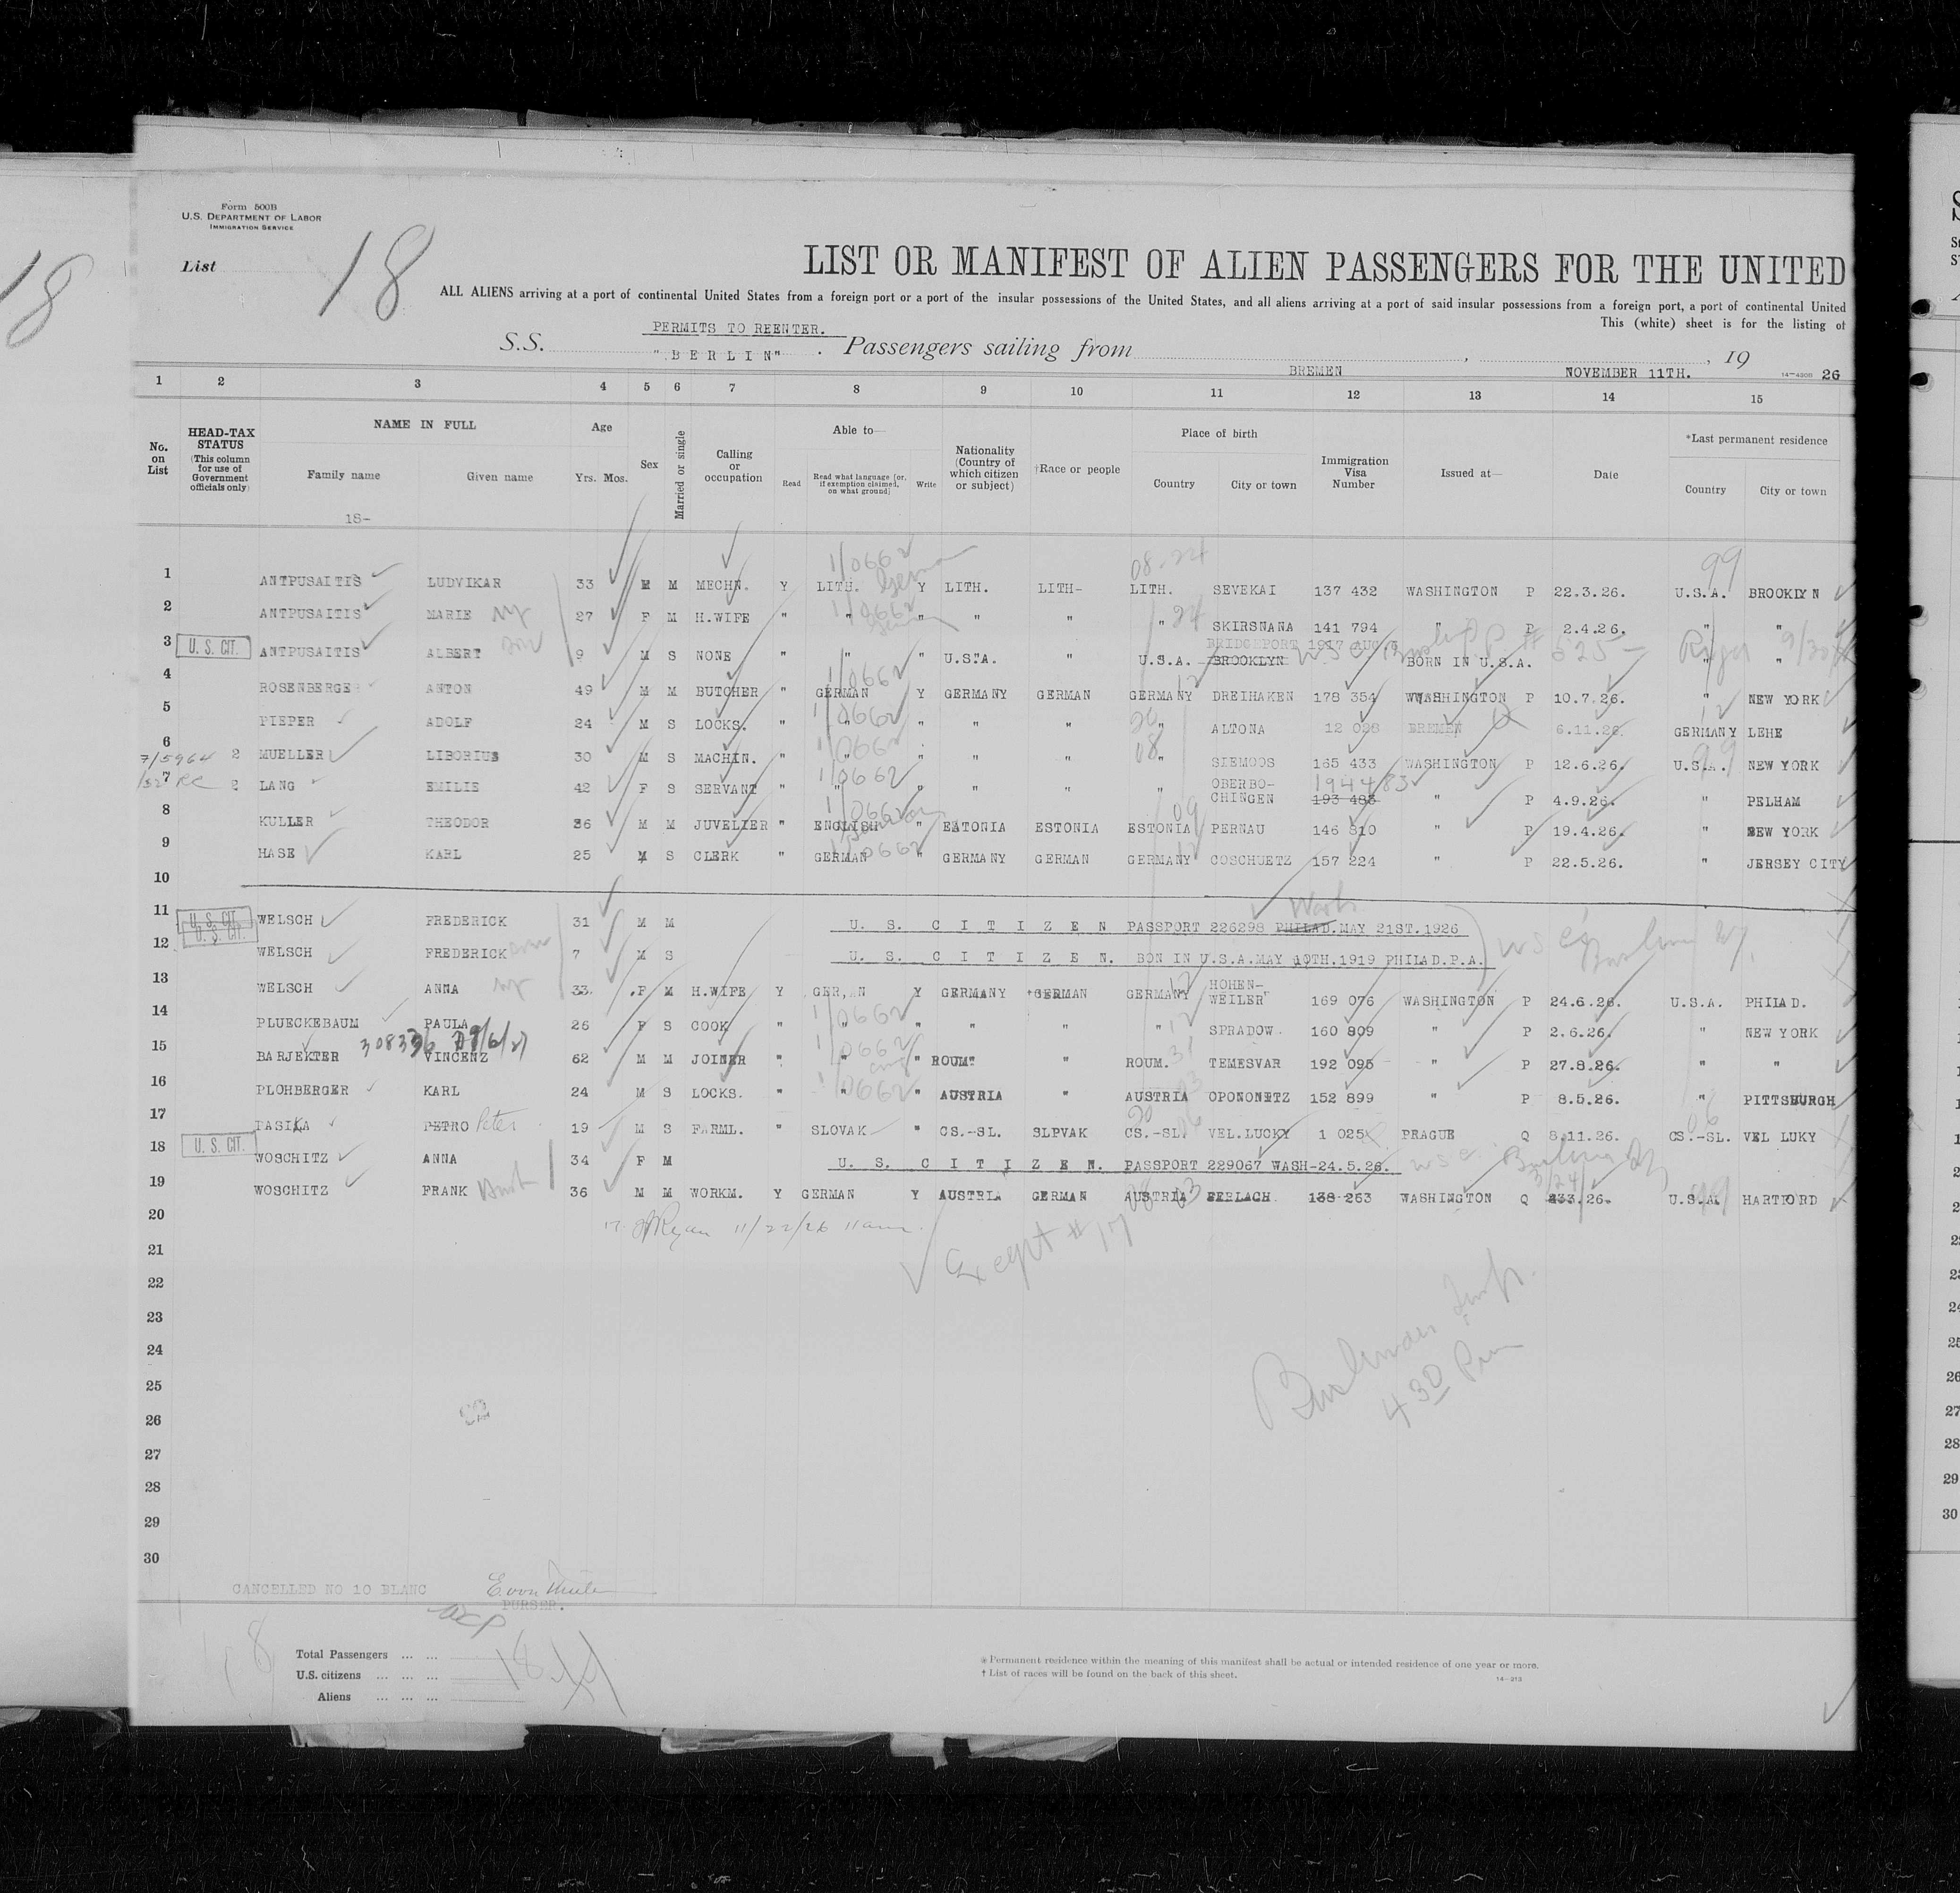 Form 500B
U.S. DEPARTMENT OF LABOR
IMMIGRATION SERVICE
List
18
18
LIST OR MANIFEST OF ALIEN PASSENGERS FOR THE UNITED
ALL ALIENS arriving at a port of continental United States from a foreign port or a port of the insular possessions of the United States, and all aliens arriving at a port of said insular possessions from a foreign port, a port of continental United
This (white) sheet is for the listing of
PERMITS TO REENTER.
S.S. "BERLIN" . Passengers sailing from BREMEN , NOVEMBER 11TH. , 19 26
1 2 3 4 5 6 7 8 9 10 11 12 13 14 15
No. on List
HEAD-TAX STATUS (This column for use of Government officials only)
NAME IN FULL
Family name Given name
Age
Yrs. Mos.
Sex
Married or single
Calling or occupation
Able to—
Read Read what language [or, if exemption claimed, on what ground] Write
Nationality (Country of which citizen or subject)
†Race or people
Place of birth
Country City or town
Immigration Visa Number
Issued at—
Date
*Last permanent residence
Country City or town
18-
1 ANTPUSAITIS LUDVIKAR 33 M M MECHN. Y LITH. Y LITH. LITH- LITH. SEVEKAI 137 432 WASHINGTON P 22.3.26. U.S.A. BROOKLYN
2 ANTPUSAITIS MARIE 27 F M H.WIFE " " " " " " SKIRSNANA 141 794 " P 2.4.26. " "
BRIDGEPORT 1917 AUG.
3 U. S. CIT. ANTPUSAITIS ALBERT 9 M S NONE " " " U.S.A. " U.S.A. BROOKLYN BORN IN U.S.A. " "
4 ROSENBERGE ANTON 49 M M BUTCHER " GERMAN Y GERMANY GERMAN GERMANY DREIHAKEN 178 354 WASHINGTON P 10.7.26. " NEW YORK
5 PIEPER ADOLF 24 M S LOCKS. " " " " " " ALTONA 12 028 BREMEN 6.11.26. GERMANY LEHE
6 2 MUELLER LIBORIUS 30 M S MACHIN. " " " " " " SIEMOOS 165 433 WASHINGTON P 12.6.26. U.S.A. NEW YORK
7 2 LANG EMILIE 42 F S SERVANT " " " " " " OBERBO-CHINGEN 193 483 194483 " P 4.9.26. " PELHAM
8 KULLER THEODOR 36 M M JUVELIER " ENGLISH " EATONIA ESTONIA ESTONIA PERNAU 146 810 " P 19.4.26. " NEW YORK
9 HASE KARL 25 M S CLERK " GERMAN " GERMANY GERMAN GERMANY COSCHUETZ 157 224 " P 22.5.26. " JERSEY CITY
10
11 U. S. CIT. WELSCH FREDERICK 31 M M U. S. CITIZEN PASSPORT 226298 PHILAD. MAY 21ST.1926
12 U. S. CIT. WELSCH FREDERICK 7 M S U. S. CITIZEN. BON IN U.S.A.MAY 10TH.1919 PHILAD.P.A.
13 WELSCH ANNA 33 F M H.WIFE Y GER,AN Y GERMANY GERMAN GERMANY HOHEN-WEILER 169 076 WASHINGTON P 24.6.26. U.S.A. PHILAD.
14 PLUECKEBAUM PAULA 26 F S COOK " " " " " " SPRADOW 160 809 " P 2.6.26. " NEW YORK
15 BARJEKTER VINCENZ 62 M M JOINER " " " ROUM. " ROUM. TEMESVAR 192 095 " P 27.8.26. " "
16 PLOHBERGER KARL 24 M S LOCKS. " " " AUSTRIA " AUSTRIA OPONONITZ 152 899 " P 8.5.26. " PITTSBURGH
17 TASIKA PETRO Peter 19 M S FARML. " SLOVAK " CS.-SL. SLPVAK CS.-SL. VEL.LUCKY 1 025 PRAGUE Q 8.11.26. CS.-SL. VEL LUKY
18 U. S. CIT. WOSCHITZ ANNA 34 F M U. S. CITIZEN. PASSPORT 229067 WASH-24.5.26.
19 WOSCHITZ FRANK 36 M M WORKM. Y GERMAN Y AUSTRIA GERMAN AUSTRIA FERLACH 138 263 WASHINGTON Q U.S.A. HARTFORD
20 Ryan 11/22/26 11am.
21 Except # 17
22
23
24
25
26
27
28
29
30
CANCELLED NO 10 BLANC
PURSER.
Total Passengers ... ...
U.S. citizens ... ... ...
Aliens ... ... ...
* Permanent residence within the meaning of this manifest shall be actual or intended residence of one year or more.
† List of races will be found on the back of this sheet.